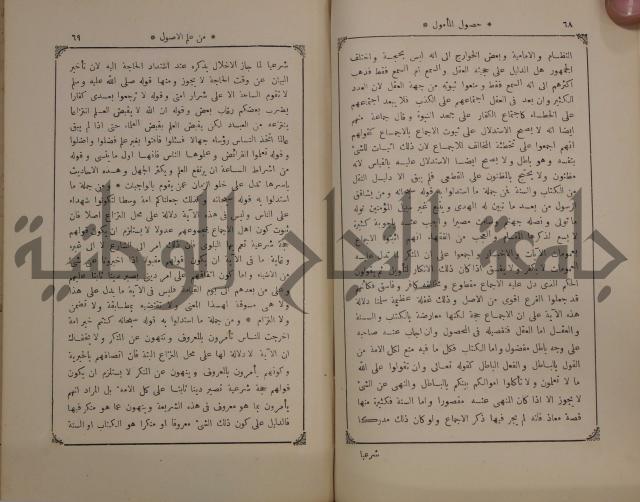 * حصول المأمول * ٦٨
النظام والامامية وبعض الخوارج الى انه ليس بحجة واختلف
الجمهور هل الدليل على حجته العقل والسمع ام السمع فقط فذهب
اكثرهم الى انه السمع فقط ومنعوا ثبوته من جهة العقل لان العدد
الكثير وان بعد فى العقل اجتماعهم على الكذب فلا يبعد اجتماعهم
على الخطاء كاجتماع الكفار على جحد النبوة وقال جماعة منهم
ايضا انه لا يصح الاستدلال على ثبوت الاجماع بالاجماع كقولهم
انهم اجمعوا على تخطئة المخالف للاجماع لان ذلك اثبات للشئ
بنفسه وهو باطل ولا يصح ايضا الاستدلال عليه بالقياس لانه
مظنون ولا يحتج بالمظنون على القطعى فلم يبق الا دليل النقل
من الكتاب والسنة فمن جملة ما استدلوا به قوله سبحانه ومن يشاقق
الرسول من بعد ما تبين له الهدى ويتبع غير سبيل المؤمنين نوله
ما تولى ونصله جهنم وساءت مصيرا واجيب عنه باجوبة كثيرة
لا يسع لذكرها المقام والعجب من الفقهاء انهم اثبتوا الاجماع
بعمومات الآيات والاخبار واجمعوا على ان المنكر لما تدل عليه
العمومات لا يكفر ولا يفسق اذا كان ذلك الانكار لتأويل ثم يقولون
الحكم الذى دل عليه الاجماع مقطوع ومخالفه كافر وفاسق فكأنهم
قد جعلوا الفرع اقوى من الاصل وذلك غفلة عظيمة سلمنا دلالة
هذه الآية على ان الاجماع حجة لكنها معارضة بالكتاب والسنة
والعقل اما العقل فتفصيله فى المحصول وان اجاب عنه صاحبه
على وجه باطل مفضول واما الكتاب فكل ما فيه منع لكل الامة من
القول بالباطل والفعل الباطل كقوله تعالى وان تقولوا على الله
ما لا تعلمون ولا تأكلوا اموالكم بينكم بالباطل والنهى عن الشئ
لا يجوز الا اذا كان المنهى عنه مقصورا واما السنة فكثيرة منها
قصة معاذ فانه لم يجر فيها ذكر الاجماع ولو كان ذلك مدركا
شرعيا
* من علم الاصول * ٦٩
شرعيا لما جاز الاخلال بذكره عند اشتداد الحاجة اليه لان تأخير
البيان عن وقت الحاجة لا يجوز ومنها قوله صلى الله عليه وسلم
لا تقوم الساعة الا على شرار امتى وقوله لا ترجعوا بعدى كفارا
يضرب بعضكم رقاب بعض وقوله ان الله لا يقبض العلم انتزاعا
ينتزعه من العباد لكن يقبض العلم بقبض العلماء حتى اذا لم يبق
عالما اتخذ الناس رؤساء جهالا فسئلوا فافتوا بغير علم فضلوا واضلوا
وقوله تعلموا الفرائض وعلموها الناس فانها اول ما ينسى وقوله
من اشراط الساعة ان يرتفع العلم ويكثر الجهل وهذه الاحاديث
باسرها تدل على خلو الزمان عمن يقوم بالواجبات * ومن جملة ما
استدلوا به قوله سبحانه وكذلك جعلناكم امة وسطا لتكونوا شهداء
على الناس وليس فى هذه الآية دلالة على محل النزاع اصلا فان
ثبوت كون اهل الاجماع بمجموعهم عدولا لا يستلزم ان يكون قولهم
حجة شرعية تعم بها البلوى فان ذلك امر الى الشارع لا الى غيره
وغاية ما فى الآية ان يكون قولهم مقبولا اذا اخبرونا عن شئ
من الاشياء واما كون اتفاقهم على امر دينى يصير دينا ثابتا عليهم
وعلى من بعدهم الى يوم القيامة فليس فى الآية ما يدل على هذا
ولا هى مسوقة لهذا المعنى ولا تقتضيه بمطابقة ولا تضمن
ولا التزام * ومن جملة ما استدلوا به قوله سبحانه كنتم خير امة
اخرجت للناس تأمرون بالمعروف وتنهون عن المنكر ولا يخفاك
ان الآية لا دلالة لها على محل النزاع البتة فان اتصافهم بالخيرية
وكونهم يأمرون بالمعروف وينهون عن المنكر لا يستلزم ان يكون
قولهم حجة شرعية تصير دينا ثابتا على كل الامة بل المراد انهم
يأمرون بما هو معروف فى هذه الشريعة وينهون عما هو منكر فيها
فالدليل على كون ذلك الشئ معروفا او منكرا هو الكتاب او السنة
جامعة الرياض